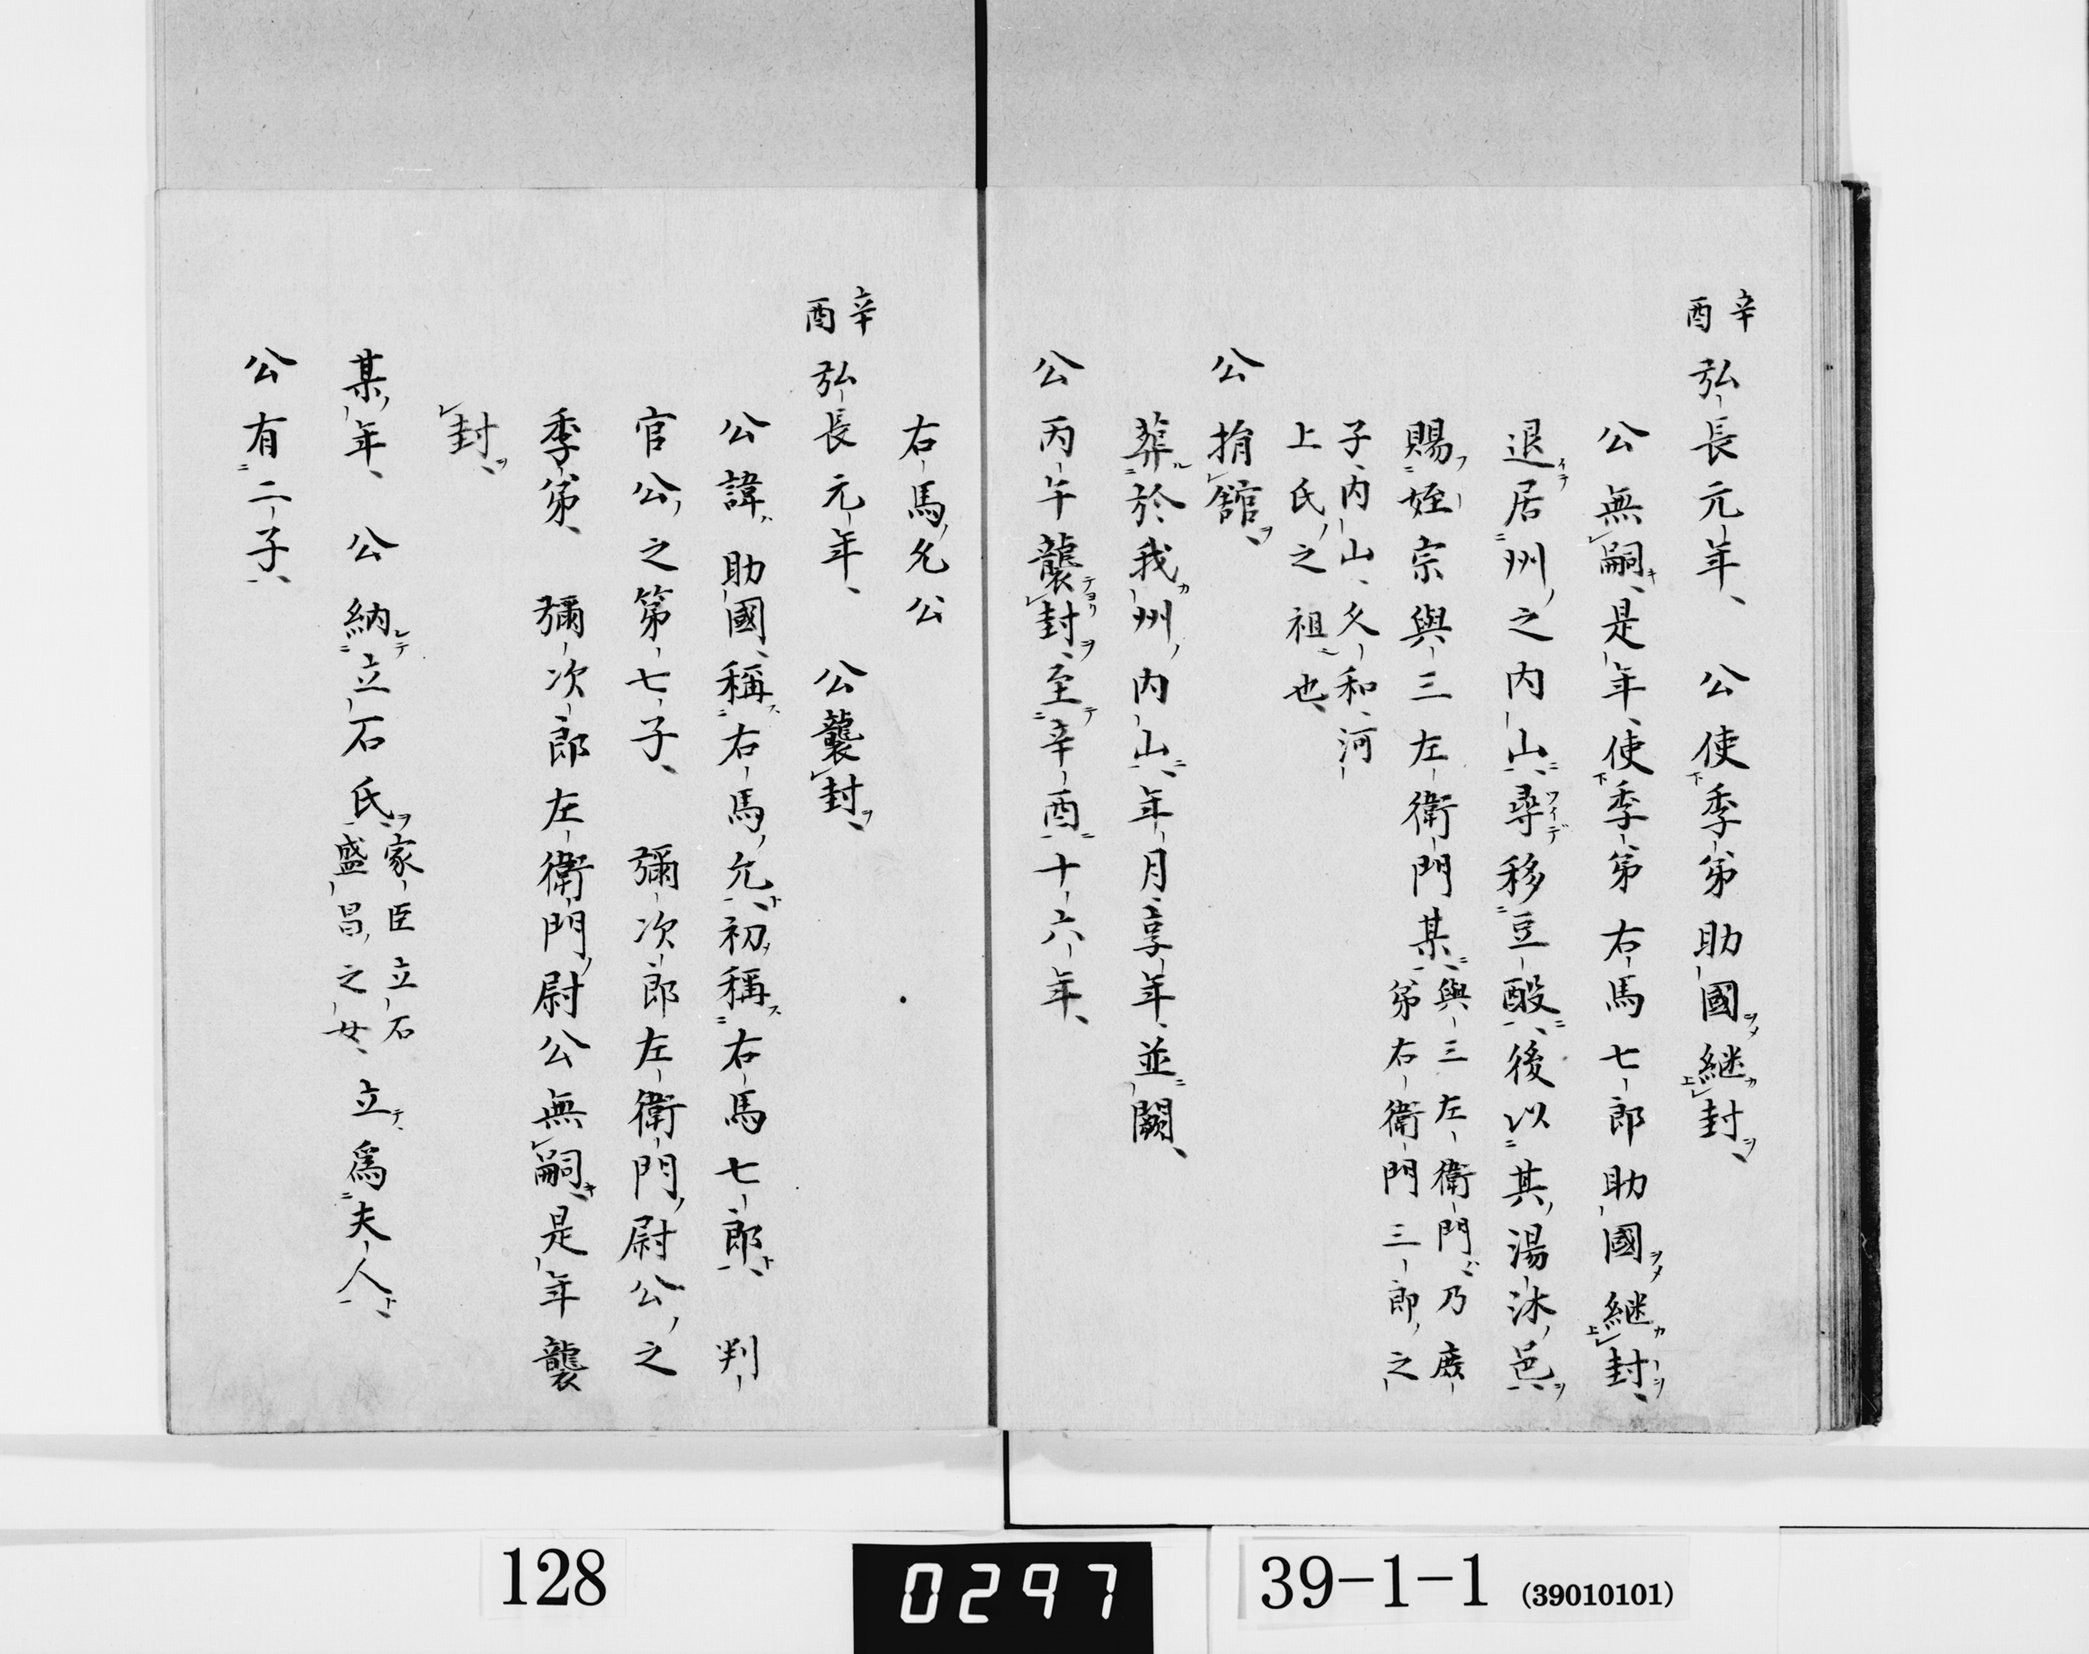 辛酉
弘長元年、 公使季弟助國継封、
公無嗣、是年、使季弟右馬七郎助國継封、
退居州之内山、尋移豆酘、後以其湯沐邑
賜姪宗與三左衛門某、與三左衛門乃庶
弟右衛門三郎之
子、内山、久和、河
上氏之祖也、
公捐舘、
葬於我州内山、年月享年、並闕、
公丙午襲封、至辛酉十六年、
右馬允公
辛酉
弘長元年、 公襲封、
公諱助國、稱右馬允、初稱右馬七郎、 判
官公之第七子、 彌次郎左衛門尉公之
季弟、 彌次郎左衛門尉公無嗣、是年襲
封、
某年、 公納立石氏、家臣立石
盛昌之女、立爲夫人、
公有二子、
128
0297
39-1-1 (39010101)